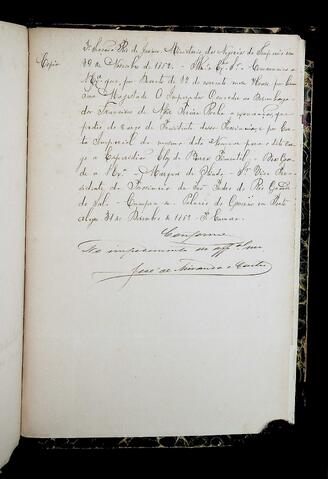 Copia
3ª Secção Rio de Janeiro Ministerio dos Negocios do Imperio em
de Novembro de 1852. Illmo Exmo Sr. Communico a
V. Exª que, por Decreto de 12 do corrente mez Houve por bem
Sua Magestade O Imperador Conceder ao Dezembarga-
dor Francisco de Rocha a exoneração que
pedio do cargo de Presidente dessa Provincia e por Car-
ta Imperial da mesma data Nomear para o dito car-
go a Pimentel. Deos Guar-
de a V. Exª Marquez de Olinda. Sr. Vice Pre-
sidente da Provincia de São Pedro do Rio Grande
do Sul. Cumpra-se. Palacio do Governo em Porto
Alegre 31 de Dezembro de
Conforme
No impedimento do offal maior
José de Miranda e Castro